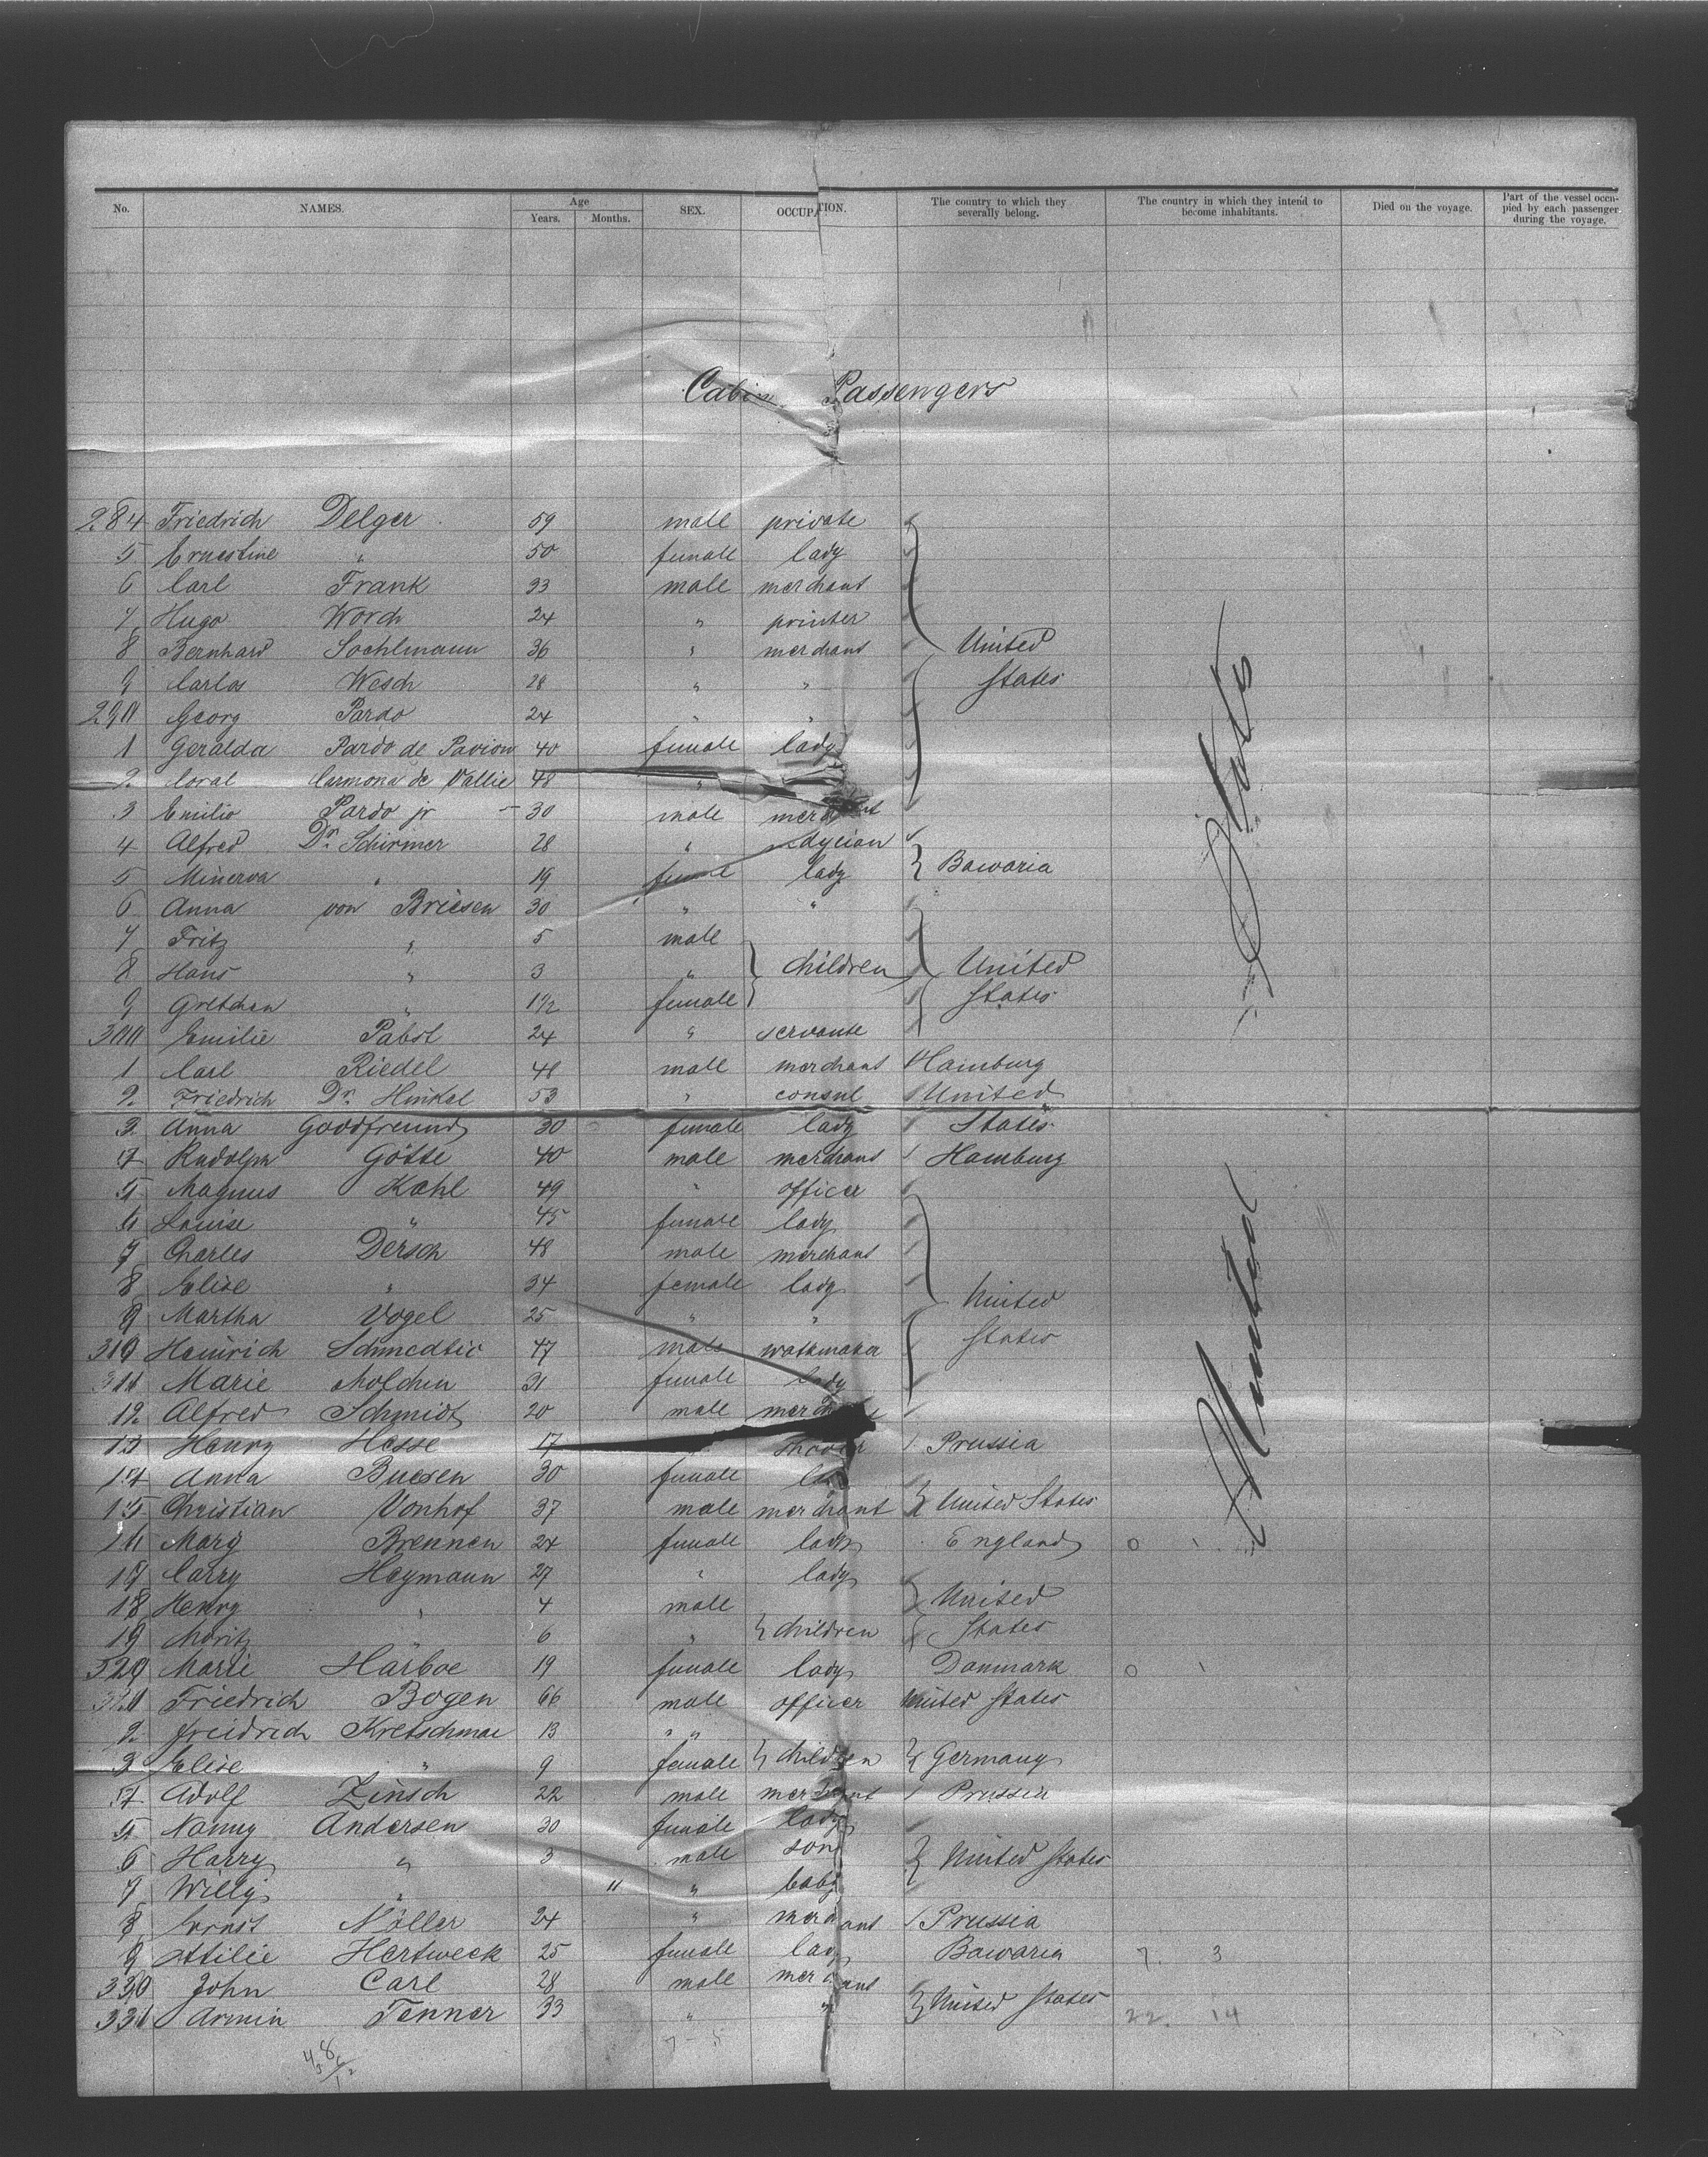 No. NAMES. Age Years. Months. SEX. OCCUPATION. The country to which they severally belong. The country in which they intend to become inhabitants. Died on the voyage. Part of the vessel occupied by each passenger during the voyage.
Cabin Passengers
284 Friedrich Delger 59 male private
5 Ernestine " 50 female lady
6 Carl Frank 33 male merchant
7 Hugo Worch 24 " printer
8 Bernhard Sochlmann 36 " merchant United
9 Carlos Wesch 28 " " States
290 Georg Pardo 24 " "
1 Geralda Pardo de Pavion 40 female lady
2 Coral Carmona de Vallie 48 "
3 Emilio Pardo jr 30 male merchant
4 Alfred Dr. Schirmer 28 "
5 Minerva " 19 female lady Bawaria
6 Anna von Briesen 30 " "
7 Fritz " 5 male
8 Hans " 3 " children United
9 Gretchen " 1 1/2 female States
300 Emilie Pabst 24 " servante
1 Carl Riedel 48 male merchant Hamburg
2 Friedrich Dr. Hinkel 53 " consul United
3 Anna Goodfreund 30 female lady States
4 Rudolph Götte 40 male merchant Hamburg
5 Magnus Kahl 49 " officer
6 Louise " 45 female lady
7 Charles Dersch 48 male merchant
8 Elise " 34 female lady
9 Martha Vogel 25 " " United
310 Heinrich Schmedtie 47 male watkmaker States
311 Marie Molchin 31 female lady
12 Alfred Schmidt 20 male
13 Henry Hesse 17 Prussia
14 Anna Buesen 30 female
15 Christian Vonhof 37 male merchant United States
16 Mary Brennen 24 female lady England 0
17 Carry Heymann 27 " lady
18 Henry " 4 male United
19 Moritz " 6 " children States
320 Marie Harboe 19 female lady Danmark 0
320 Friedrich Bogen 66 male officer United States
2 Freidrich Kretschmar 13 " "
3 Elise " 9 female children Germany
4 Adolf Zinsch 22 male merchant Prussia
5 Nanny Andersen 30 female lady
6 Harry " 3 male son United States
7 Willy " 11 " baby
8 Ernst Nöller 24 " merchant Prussia
9 Ottilie Hertweck 25 female lady Bawaria 7. 3
330 John Carl 28 male merchant
331 Armin Tenner 33 " " United States 22. 14
United States